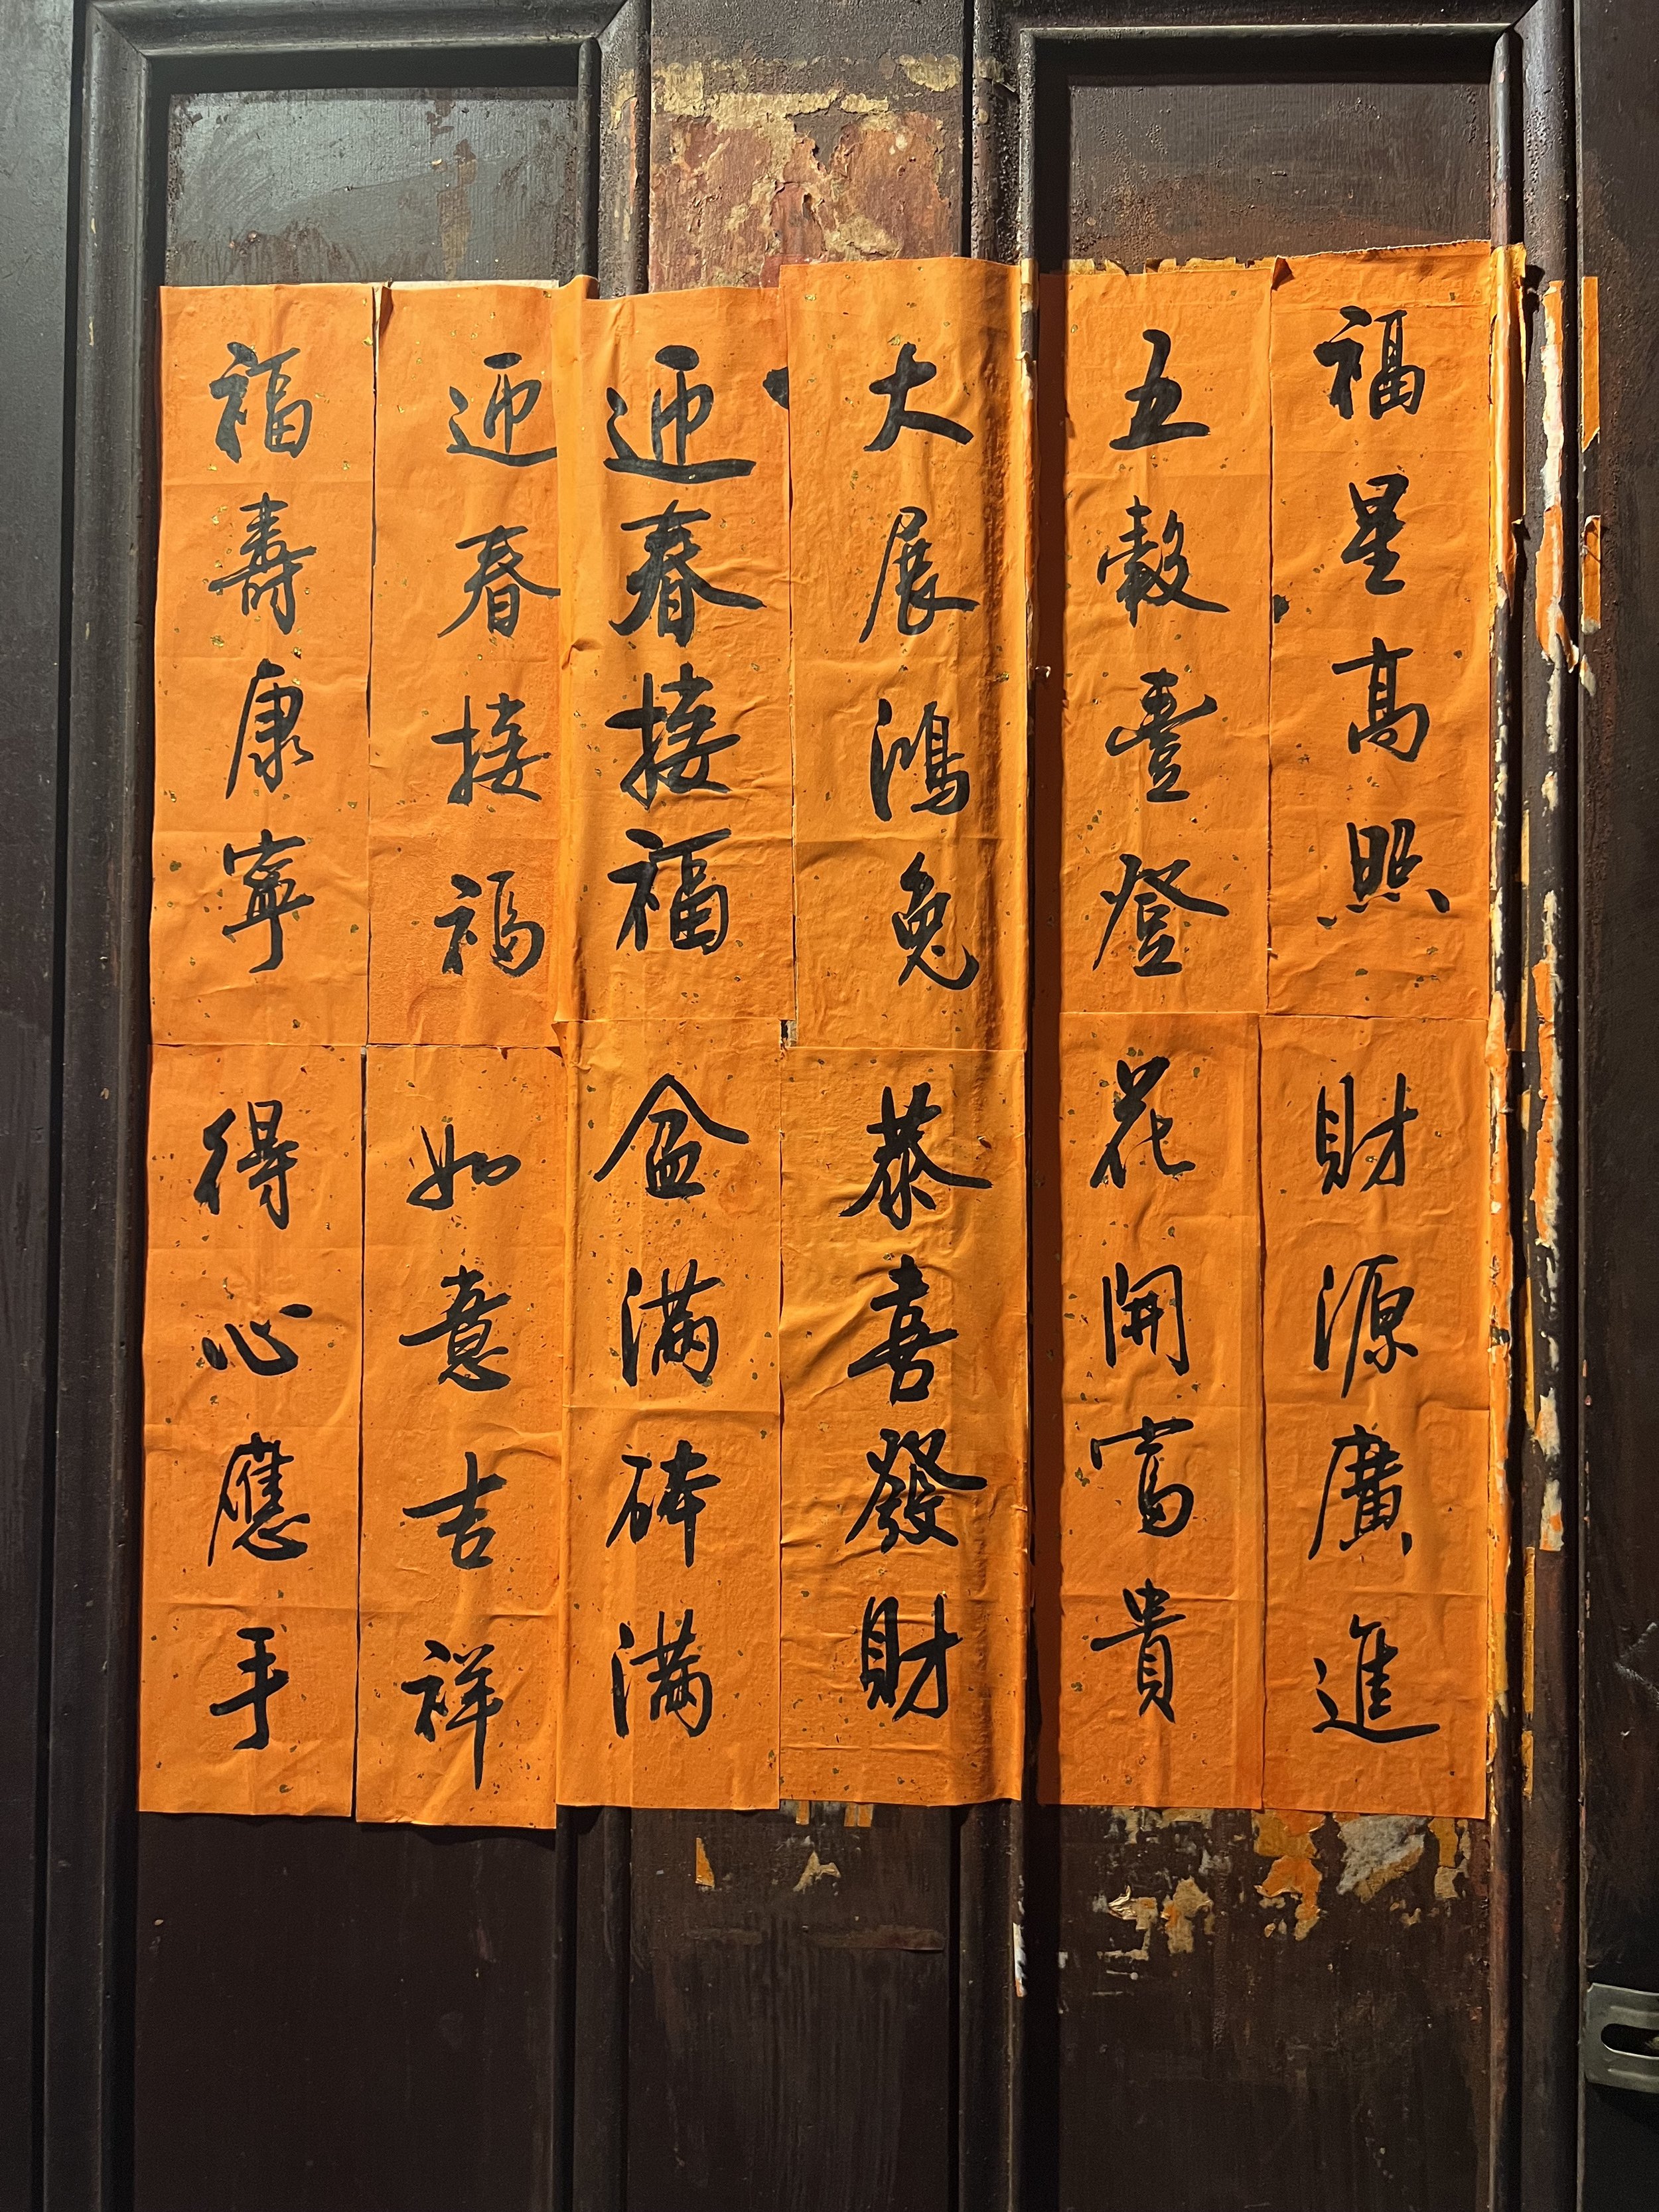 福星高照
五穀豐登
大展鴻兔
迎春接福
迎春接福
福壽康寧
財源廣進
花開富貴
恭喜發財
盆满砵满
如意吉祥
得心應手